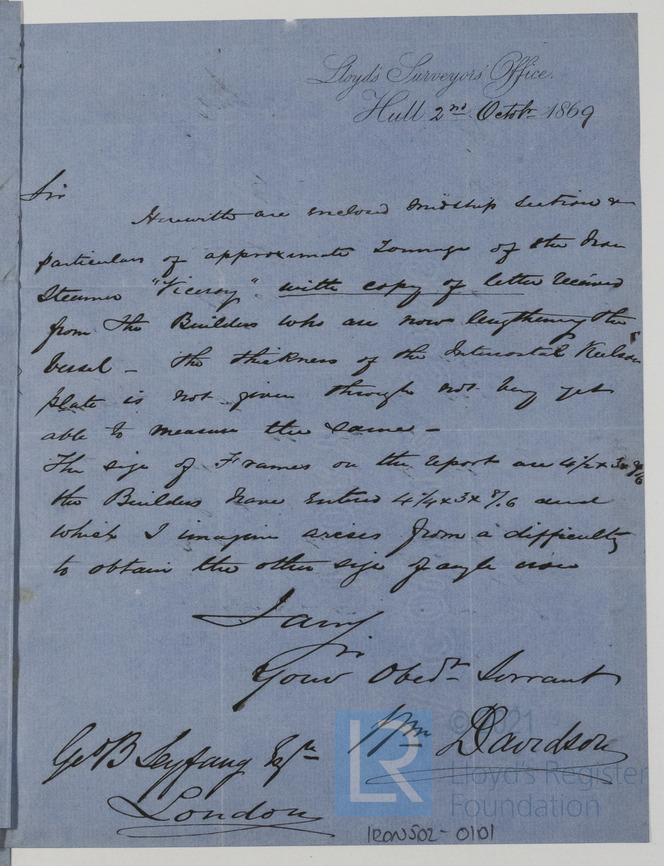 Lloyd's Surveyors' Office.
Hull 2nd Octobr 1869
Sir
Herewith are enclosed Midship Section &
particulars of approximate Tonnage of the Iron
Steamer "Viceroy" with copy of letter received
from the Builders who are now lengthening the
Vessel - the thickness of the Intercostal Keelson
plate is not given through not being yet
able to measure the same -
The size of Frames on the report are 4½ x 3 x
the Builders have entered 4¼ x 3 x 8/16 and
which I imagine arises from a difficulty
to obtain the other size of angle iron
I am
Sir
Your Obedt Servant
Wm Davidson
Geo B Seyfang Esqre
London
©2021
Lloyd's Register
Foundation
LR
IRON502-0101